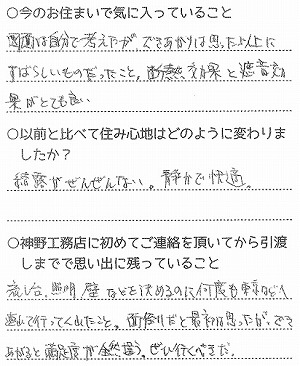 ○今のお住まいで気に入っていること
図面は自分で考えたが、できあがりは思った以上に
すばらしいものだったこと。断熱効果と遮音効
果がとても良い
○以前と比べて住み心地はどのように変わりま
したか？
結露がぜんぜんない。静かで快適。
○神野工務店に初めてご連絡を頂いてから引渡
しまでで思い出に残っていること
流し台、照明、壁などを決めるのに何度も
連れて行ってくれたこと。面倒だと最初は思ったが、でき
あがると満足度が全然違う。ぜひ行くべきだ。